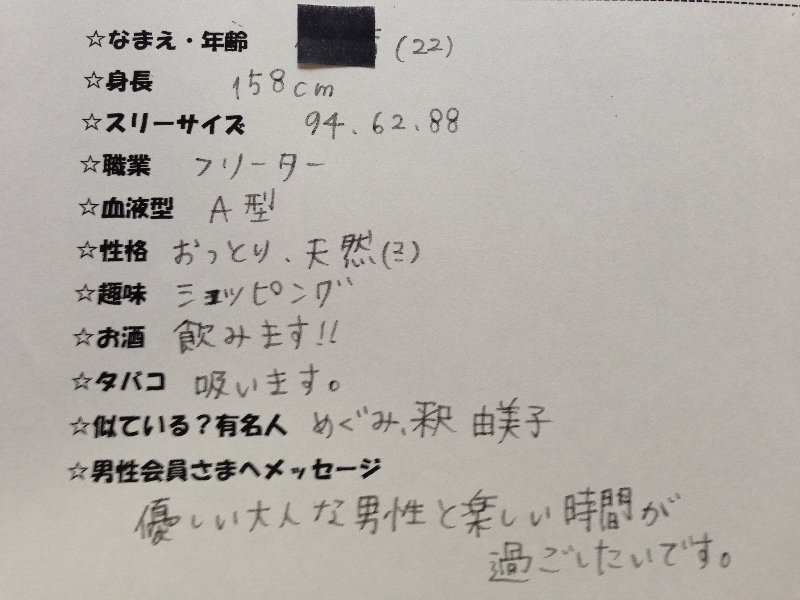 ☆なまえ・年齢 (22)
☆身長 158cm
☆スリーサイズ 94、62、88
☆職業 フリーター
☆血液型 A型
☆性格 おっとり、天然(?)
☆趣味 ショッピング
☆お酒 飲みます!!
☆タバコ 吸います。
☆似ている?有名人 めぐみ、釈 由美子
☆男性会員さまへメッセージ
優しい大人な男性と楽しい時間が
過ごしたいです。